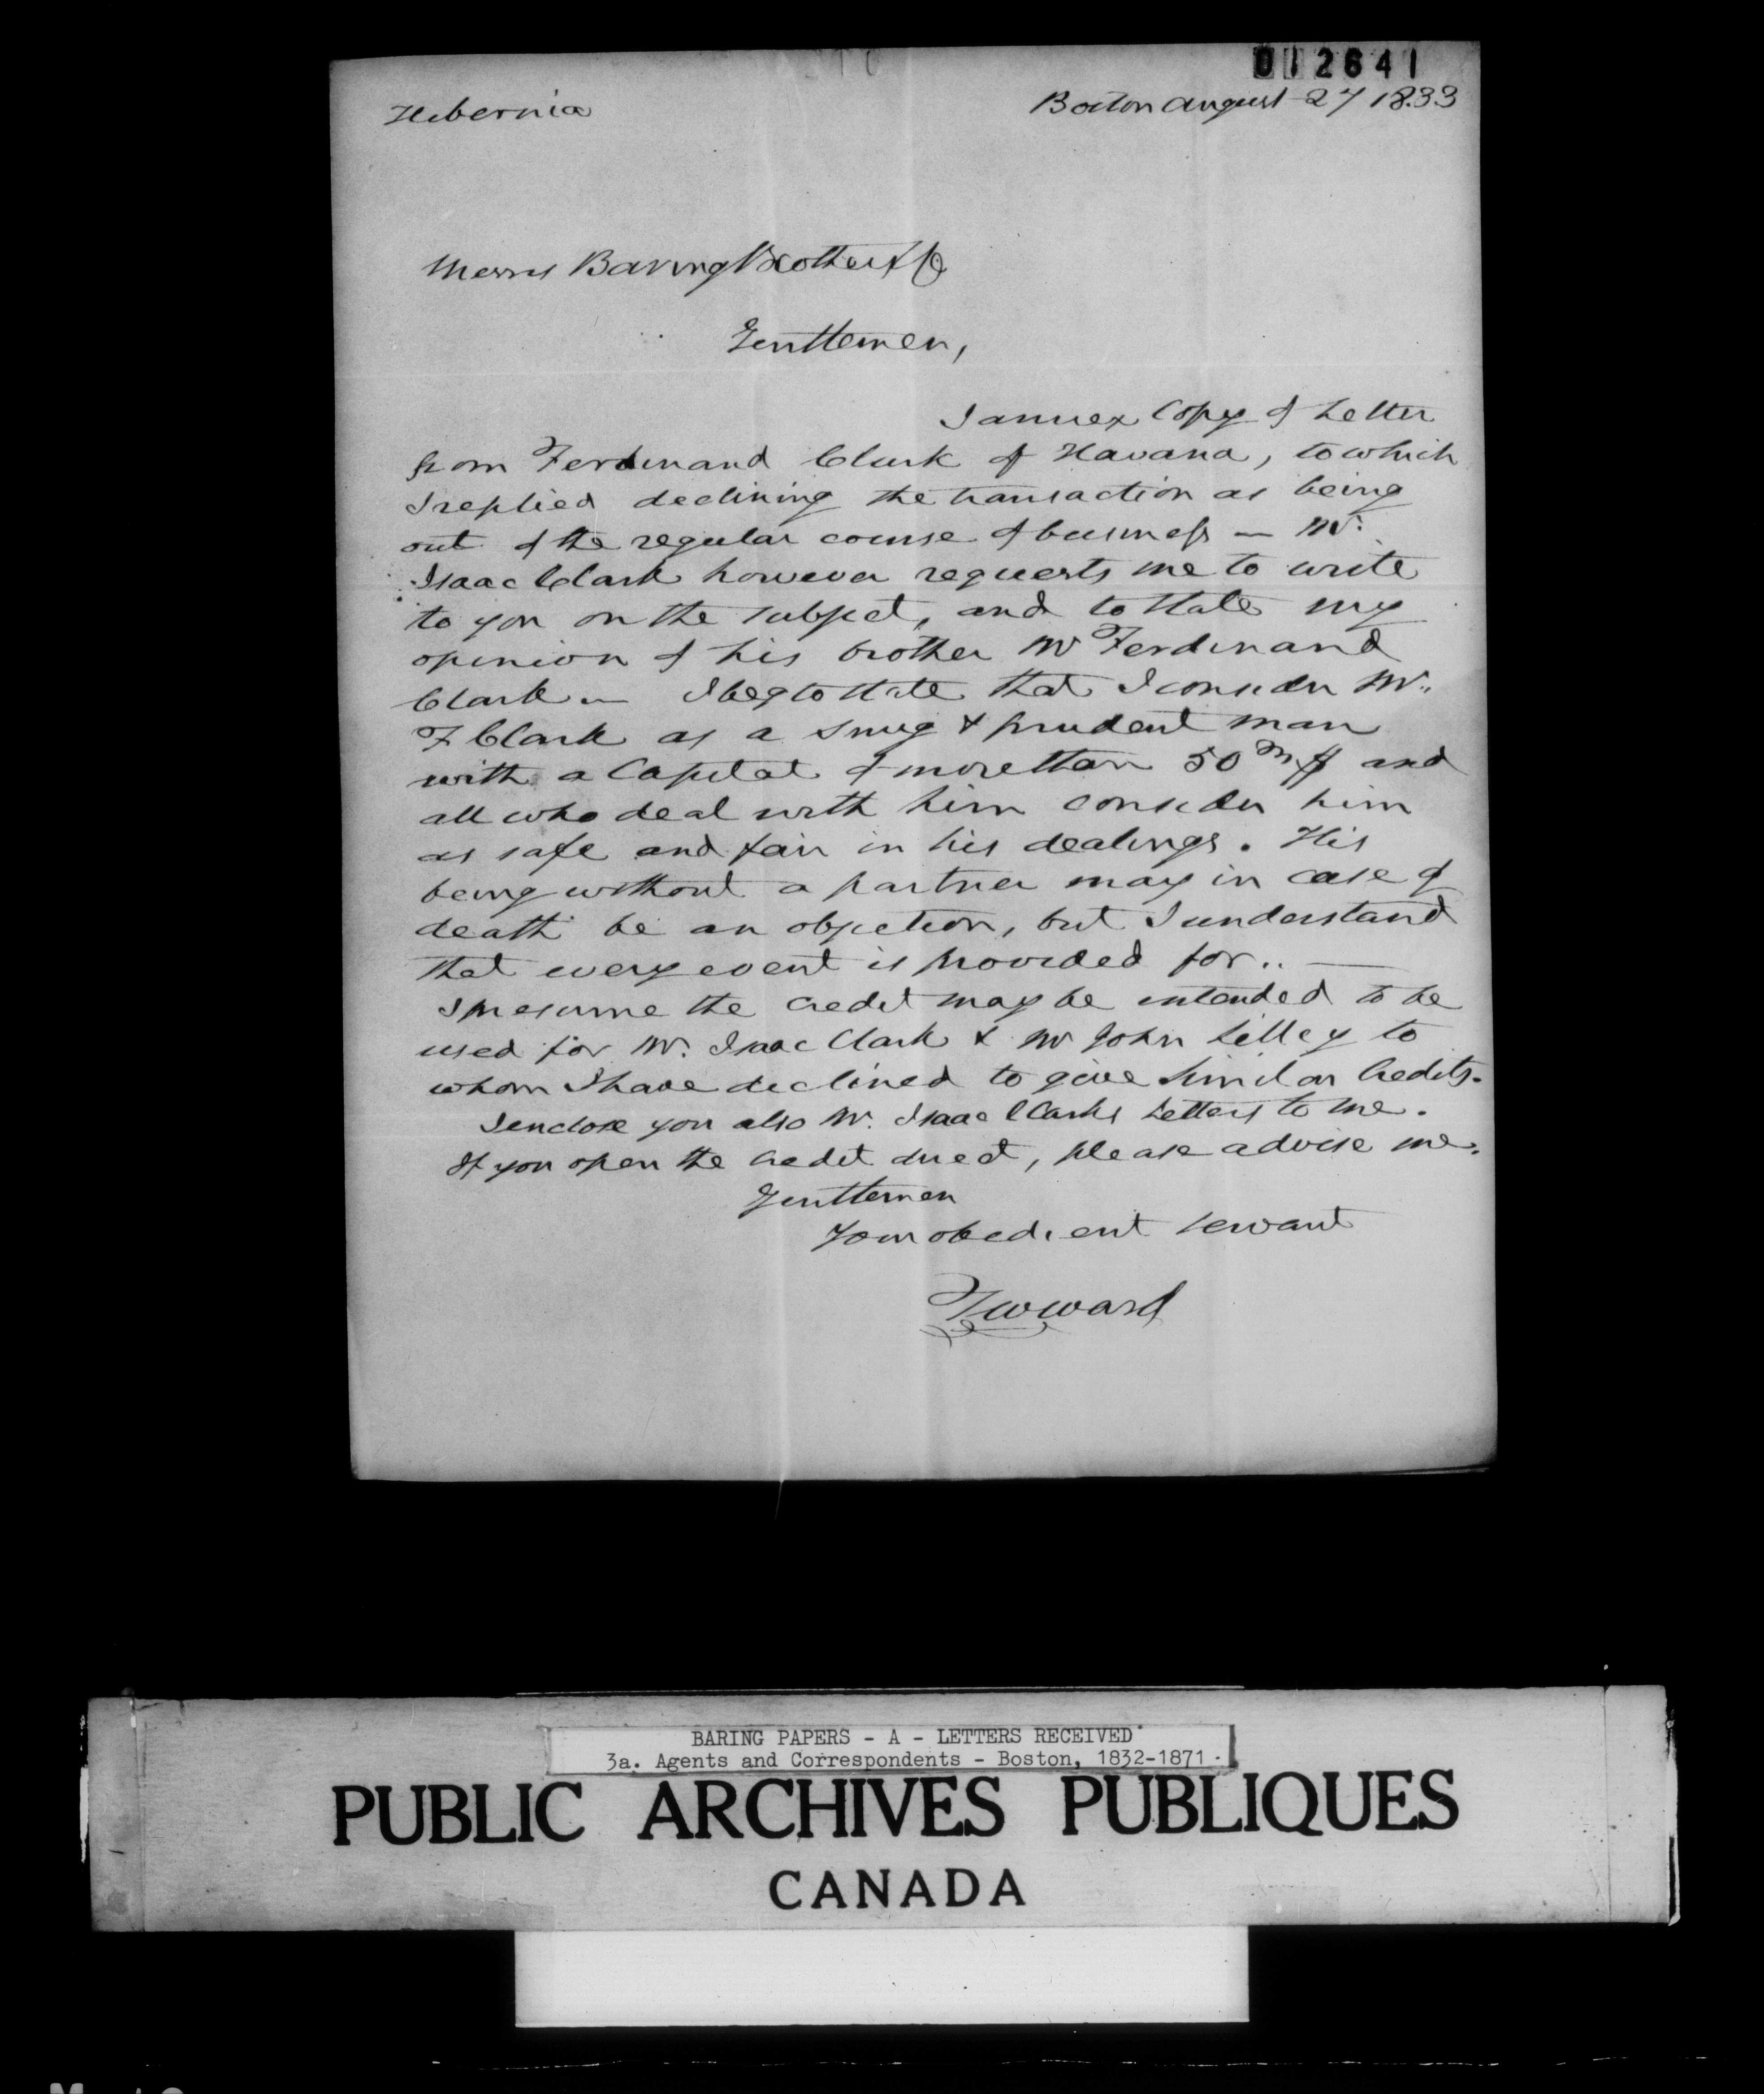 012641
Hibernia
Boston August 27 1833
Messrs Baring Brothers & Co
Gentlemen,
I annex Copy of Letter
from Ferdinand Clark of Havana, to which
I replied declining the transaction as being
out of the regular course of business — Mr.
Isaac Clark however requests me to write
to you on the subject, and to state my
opinion of his brother Mr Ferdinand
Clark — I beg to state that I consider Mr.
F Clark as a snug & prudent man
with a Capital of more than 50 m$ and
all who deal with him consider him
as safe and fair in his dealings. His
being without a partner may in case of
death be an objection, but I understand
that every event is provided for.. —
I presume the credit may be intended to be
used for Mr. Isaac Clark & Mr John Lilley to
whom I have declined to give similar Credits.
I enclose you also Mr. Isaac Clarks Letters to me.
If you open the credit direct, please advise me.
Gentlemen
Your obedient servant
TWWard
BARING PAPERS - A - LETTERS RECEIVED
3a. Agents and Correspondents - Boston, 1832-1871
PUBLIC ARCHIVES PUBLIQUES
CANADA